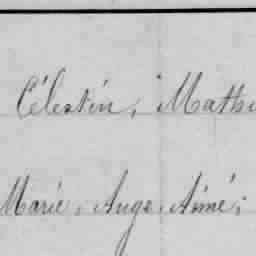 Célestin, Mathu
Marie, Ange Aimé,